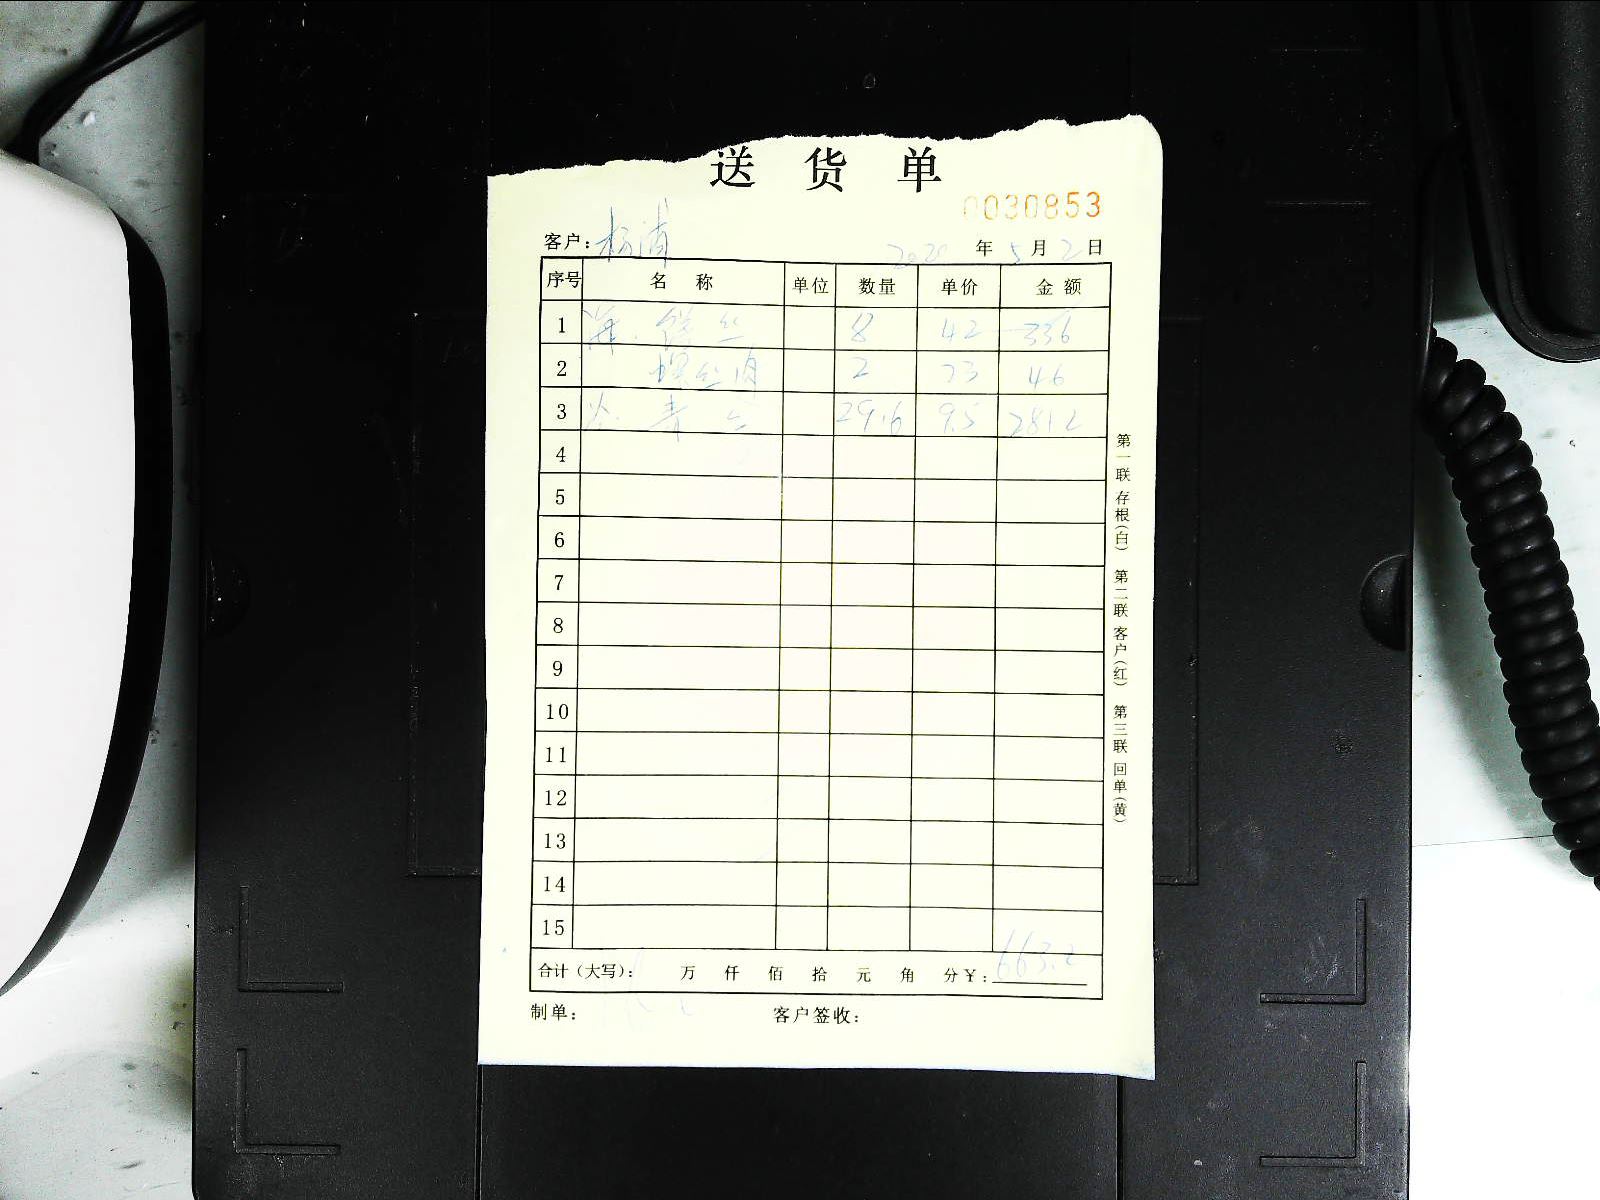 送货单
0030853
客户：杨浦 2020年5月2日
序号 名称 单位 数量 单价 金额
1 8 42 336
2 螺丝肉 2 23 46
3 青 29.6 9.5 281.2
4
5
6
7
8
9
10
11
12
13
14
15
合计（大写）： 万 仟 佰 拾 元 角 分￥：663.2
制单： 客户签收：
第一联 存根（白） 第二联 客户（红） 第三联 回单（黄）